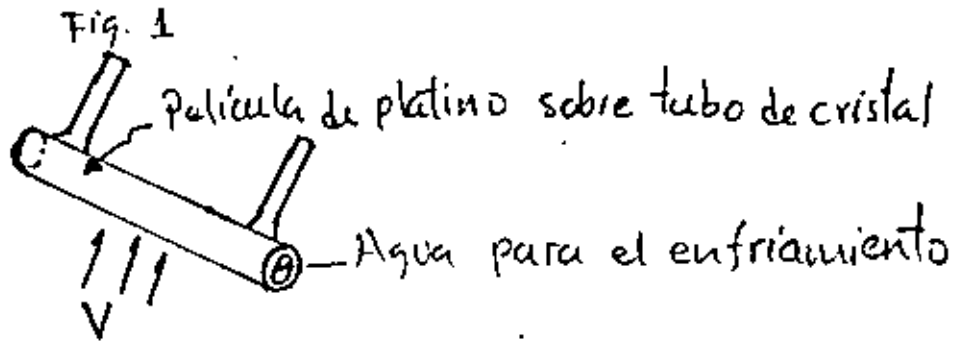 Fig. 1
Película de platino sobre tubo de cristal
Agua para el enfriamiento
V